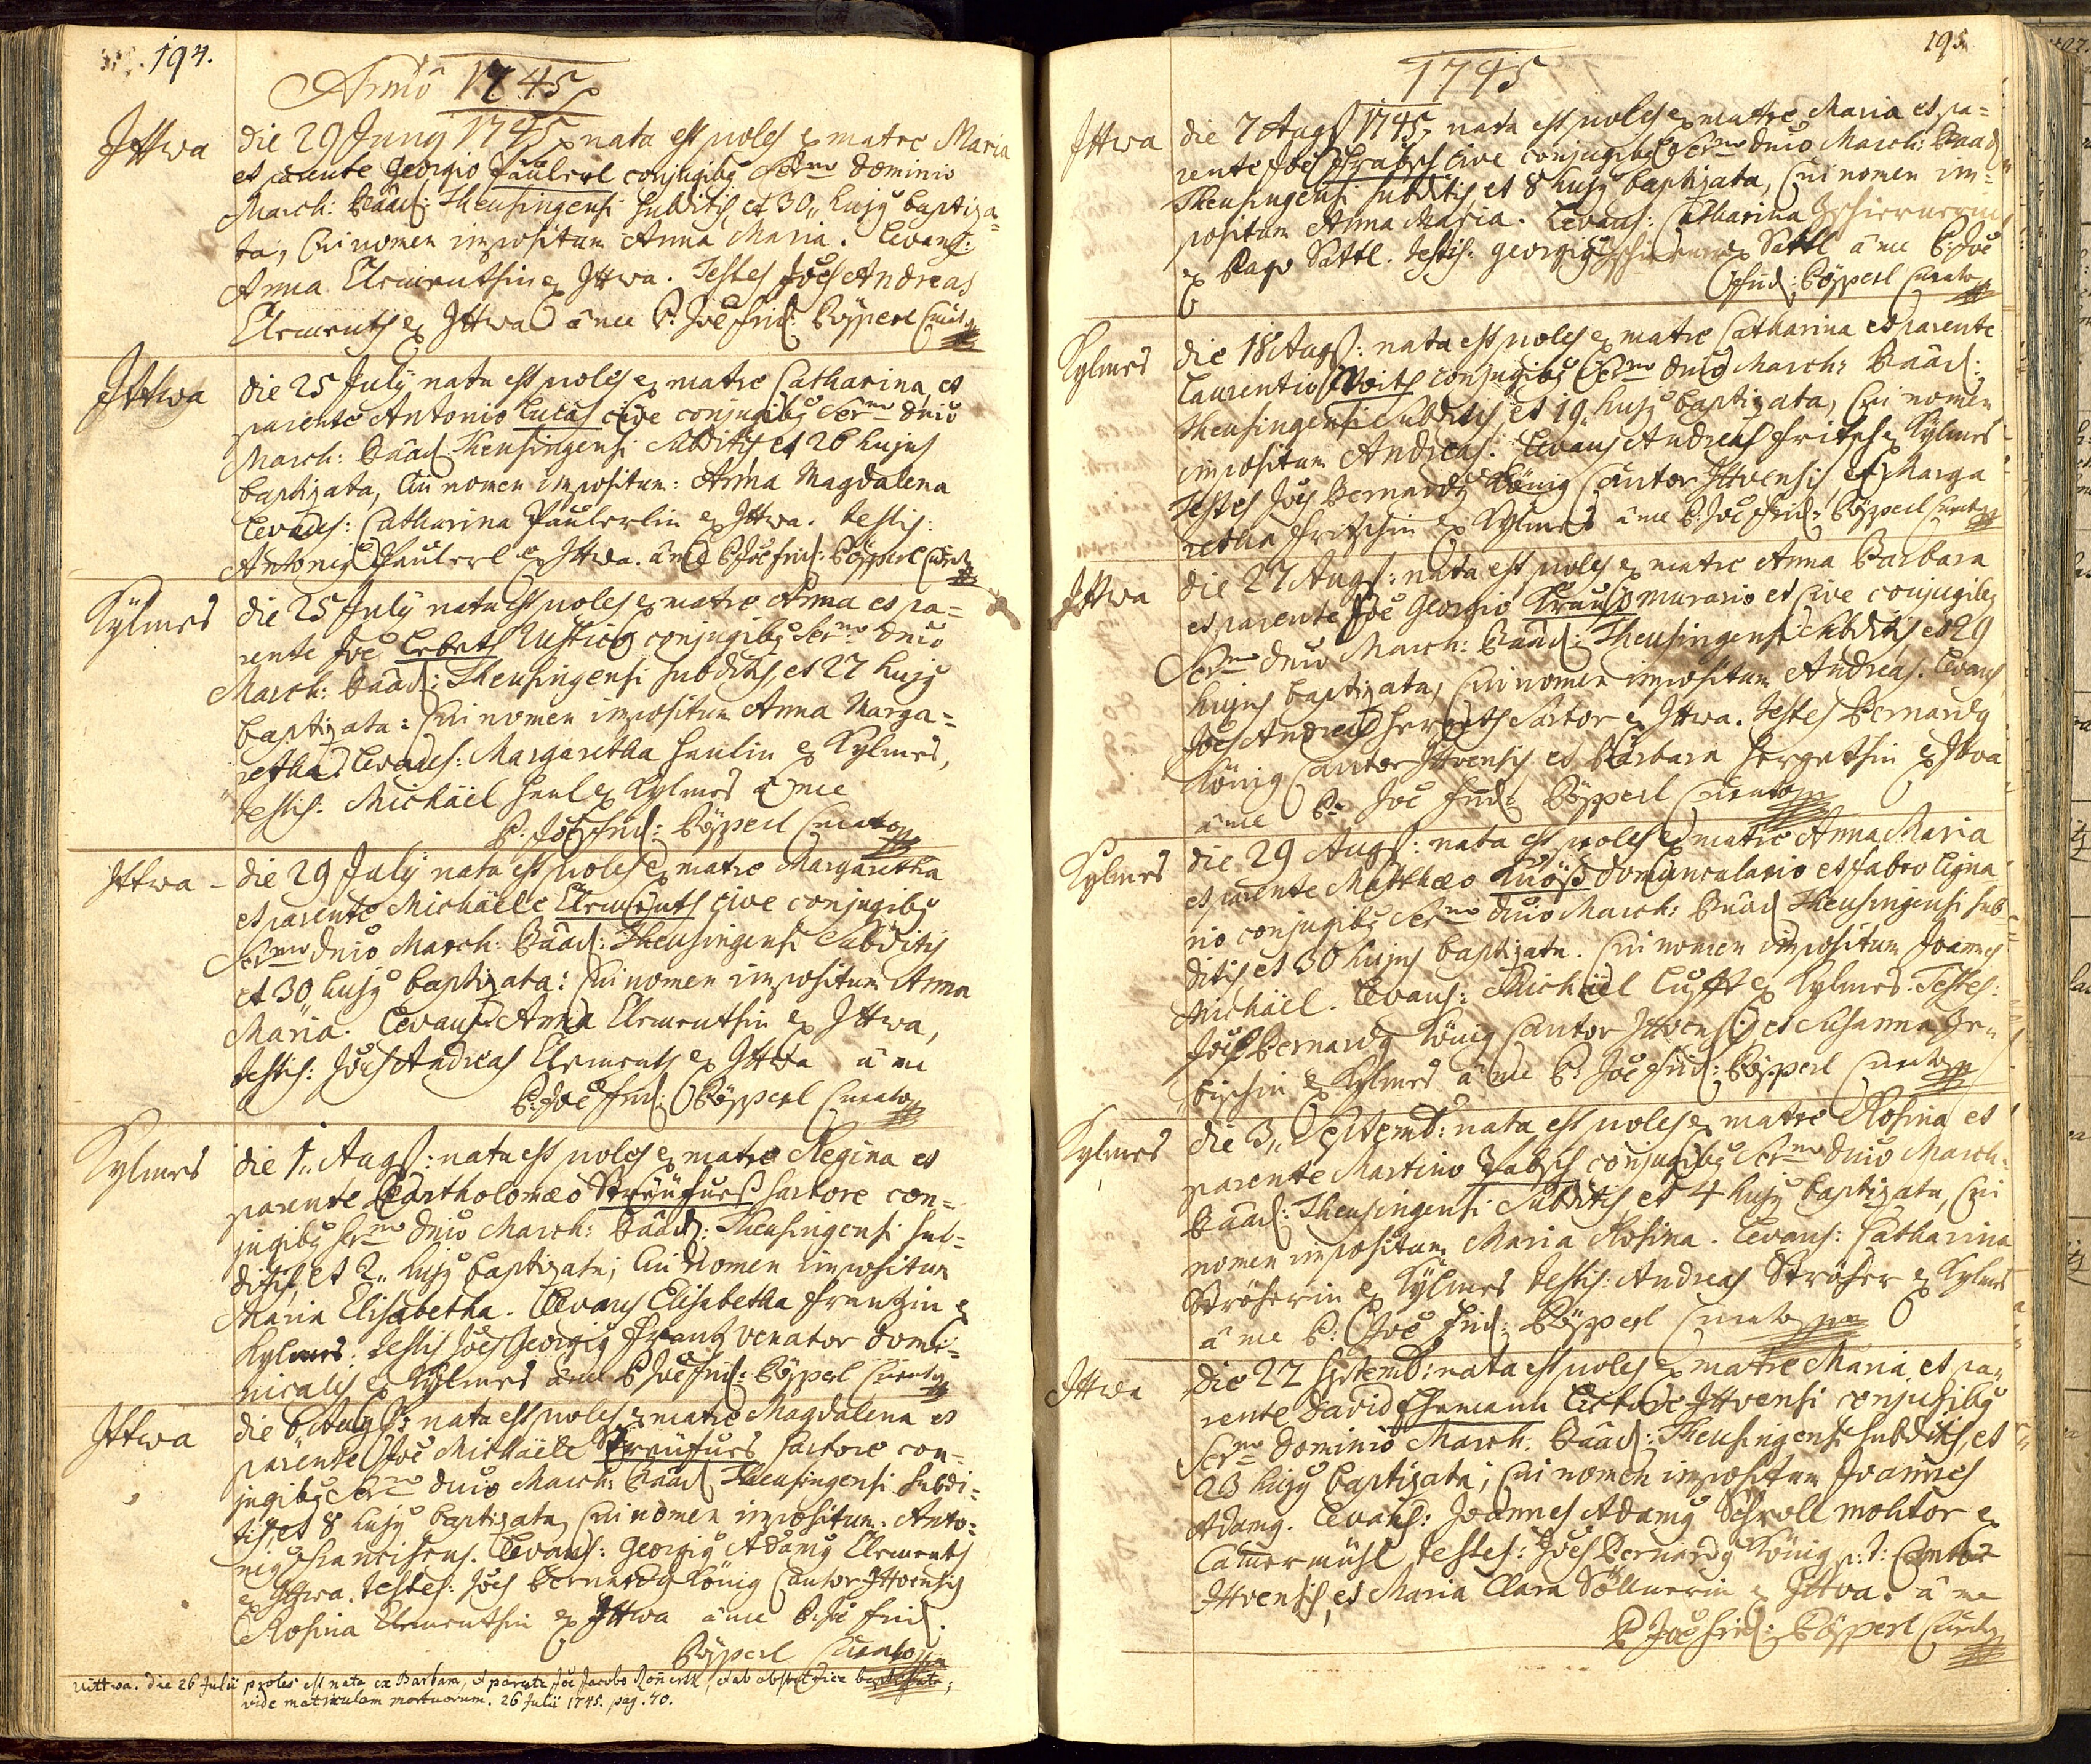 194.
Anno 1745
Ittwa
die 29 Juny 1745 nata est proles ex matre Maria
et parente Georgio Paülerl conjugibg Sermo Dominio
March: Baad: Theusingensi subditis et 30,, hujg baptiza=
ta, Cui nomen impositum Anna Maria. Levans:
Anna Clementsin ex Ittwa. Testes Joēs Andreas
Clements ex Ittwa â me P. Joē Frid: Pöpperl Curato
Ittwa
die 25 July nata est proles ex matre Catharina, et
parente Antonio Lucas cive conjugibg Sermo Dnio
March: Baad Theusingensi Subditis et 26 hujus
baptizata, Cui nomen impositum: Anna Magdalena
Levans: Catharina Paülerlin ex Ittwa. testis:
Antonig Paülerl ex Ittwa. â me P. Joē Frid: Pöpperl Curato
Kylmes
die 25 July nata est proles ex matre Anna et pa=
rente Joē Lebeth Rustico conjugibg Sermo Dnio
March: Baad: Theusingensi subditis, et 27 hujg
baptizata: Cui nomen impositum Anna Marga=
retha. Levans: Margaretha Haulin ex Kylmes,
testis: Michäel Haul ex Kylmes â me
P. Joē Frid: Pöpperl Curato
Ittwa -
die 29 July nata est proles ex matre Margaretha
et parente Michäele Clements cive conjugibg
Sermo Dnio March: Baad: Theusingensi Subditis
et 30,, hujg baptizata: Cui nomen impositum Anna
Maria. Levans Anna Clementsin ex Ittwa,
testis: Joēs Andreas Clements ex Ittwa â me
P. Joē Frid: Pöpperl Curato
Kylmes
die 1,, Augs: nata est proles ex matre Regina et
parente Bartholomæo Streüfues Sartore con=
jugibg Sermo Dnio March: Baad: Theusingensi sub=
ditis, et 2,, hujg baptizata; Cui Nomen impositum
Maria Elisabetha. Levans Elisabetha Frantzin ex
Kylmes: testis Joēs Georgig Frantz venator domi=
nicalis ex Kylmes â me P Joē Frid: Pöpperl Curato
Ittwa
die 6 Augs: nata est proles ex matre Magdalena et
parente Joē Michäele Streüfues Sartore con=
jugibg Sermo Dnio March: Baad Theusingensi Subdi=
tis, et 8 hujg baptizata, Cui nomen impositum: Anto=
nig Franciscus. Levans: Georgig Adamg Clements
ex Ittwa. testes: Joēs Bernardg König Cantor Ittvensis
Rosina Clementsin ex Ittwa â me P. Joē Frid.
Pöpperl Curato
Uittwa. die 26 Julii proles est nata ex Barbara, et parente Joē Jacobo , et ab obstetrice baptizata;
vide matriculam mortuorum. 26 Julii 1745. pag. 70.
195
1745
Ittwa
die 7 Augs 1745, nata est proles ex matre Maria et pa=
rente Joē cive conjugibg Sermo Dnio March: Baad
Theusingensi Subditis et 8 hujg baptizata, Cui nomen im=
positum Anna Maria. Levans: Catharina
ex Pago Sattl. testis: Georgig ex Sattl â me P. Joē
Frid: Pöpperl Curato
Kylmes
die 18 Augs: nata est proles ex matre Catharina et parente
Laurentio Voits conjugibg Sermo Dnio March: Baad:
Theusingensi Subditis, et 19 hujg baptizata, Cui nomen
impositum Andreas. Levans Andreas Fritsch ex Kylmes
Testes Joēs Bernardg König Cantor Ittvensis et Marga
retha Fritschin ex Kylmes â me P. Joē Frid: Pöpperl Curato
Ittwa
die 27 Augs: nata est proles ex matre Anna Barbara
et parente Joē Georgio Kraus murario et Cive conjugibg
Sermo Dnio March: Baad: Theusingensi Subditis, et 29
hujus baptizata, Cui nomen impositum Andreas. Levans
Joēs Andreas Hergeth Sartor ex Ittwa. testes Bernardg
König Cantor Ittvensis et Barbara Hergethin ex Ittwa
â me P: Joē Frid: Pöpperl Curato
Kylmes
die 29 Augs: nata est proles ex matre Anna Maria
et parente Matthæo domunculario et fabro ligna
rio conjugibg Sermo Dnio March: Baad Theusingensi sub=
ditis, et 30 hujus baptizata. Cui nomen impositum Joannes
Michäel. Levans: Michäel Lufft ex Kylmes. Testes:
Joēs Bernardg König Cantor Ittvensis et Susanna
ex Kylmes â me P: Joē Frid: Pöpperl Curato
Kylmes
die 3,, Septemb: nata est proles ex matre Rosina et
parente Martino conjugibg Sermo Dnio March:
Baad: Theusingensi Subditis, et 4 hujg baptizata, Cui
nomen impositum Maria Rosina. Levans: Catharina
Ströherin ex Kylmes testis: Andreas Ströher ex Kylmes
â me P: Joē Frid: Pöpperl Curato
Ittwa
die 22 Septemb: nata est proles ex matre Maria, et pa=
rente David Ehemann Ittvensi conjugibg
Sermo Dominio March: Baad: Theusingensi subditis, et
23 hujg baptizata; Cui nomen impositum Joannes
Adamg. Levans: Joannes Adamg Schroll molitor ex
Camermühl, testes: Joēs Bernardg König p: t: Cantor
Ittvensis, et Maria Clara Söllnerin ex Ittwa. â me
P Joē Frid: Pöpperl Curato